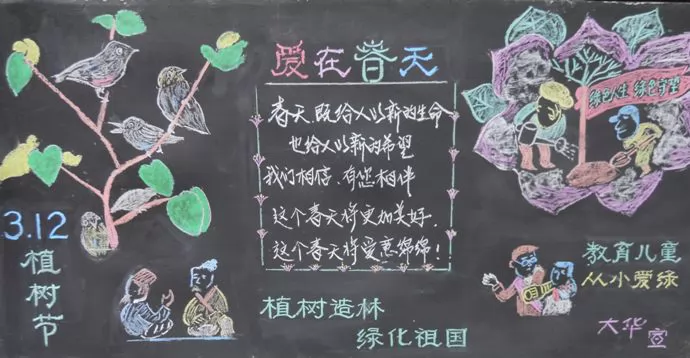 3.12
植树节
爱在春天
春天既给人以新的生命
也给人以新的希望
我们相信,有您相伴
这个春天将更加美好,
这个春天将爱意绵绵!
植树造林
绿化祖国
绿色人生 绿色守望
教育儿童
从小爱绿
大华宣